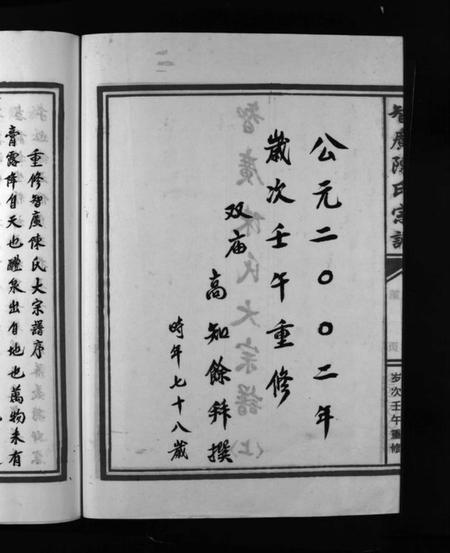 智廣陳氏宗譜
岁次壬午重修
公元二〇〇二年
歲次壬午重修
双庙
高知餘拜撰
時年七十八歲
智廣陳氏大宗譜(上)
重修智廣陳氏大宗譜序
膏露降自天也醴泉出自地也萬物未有